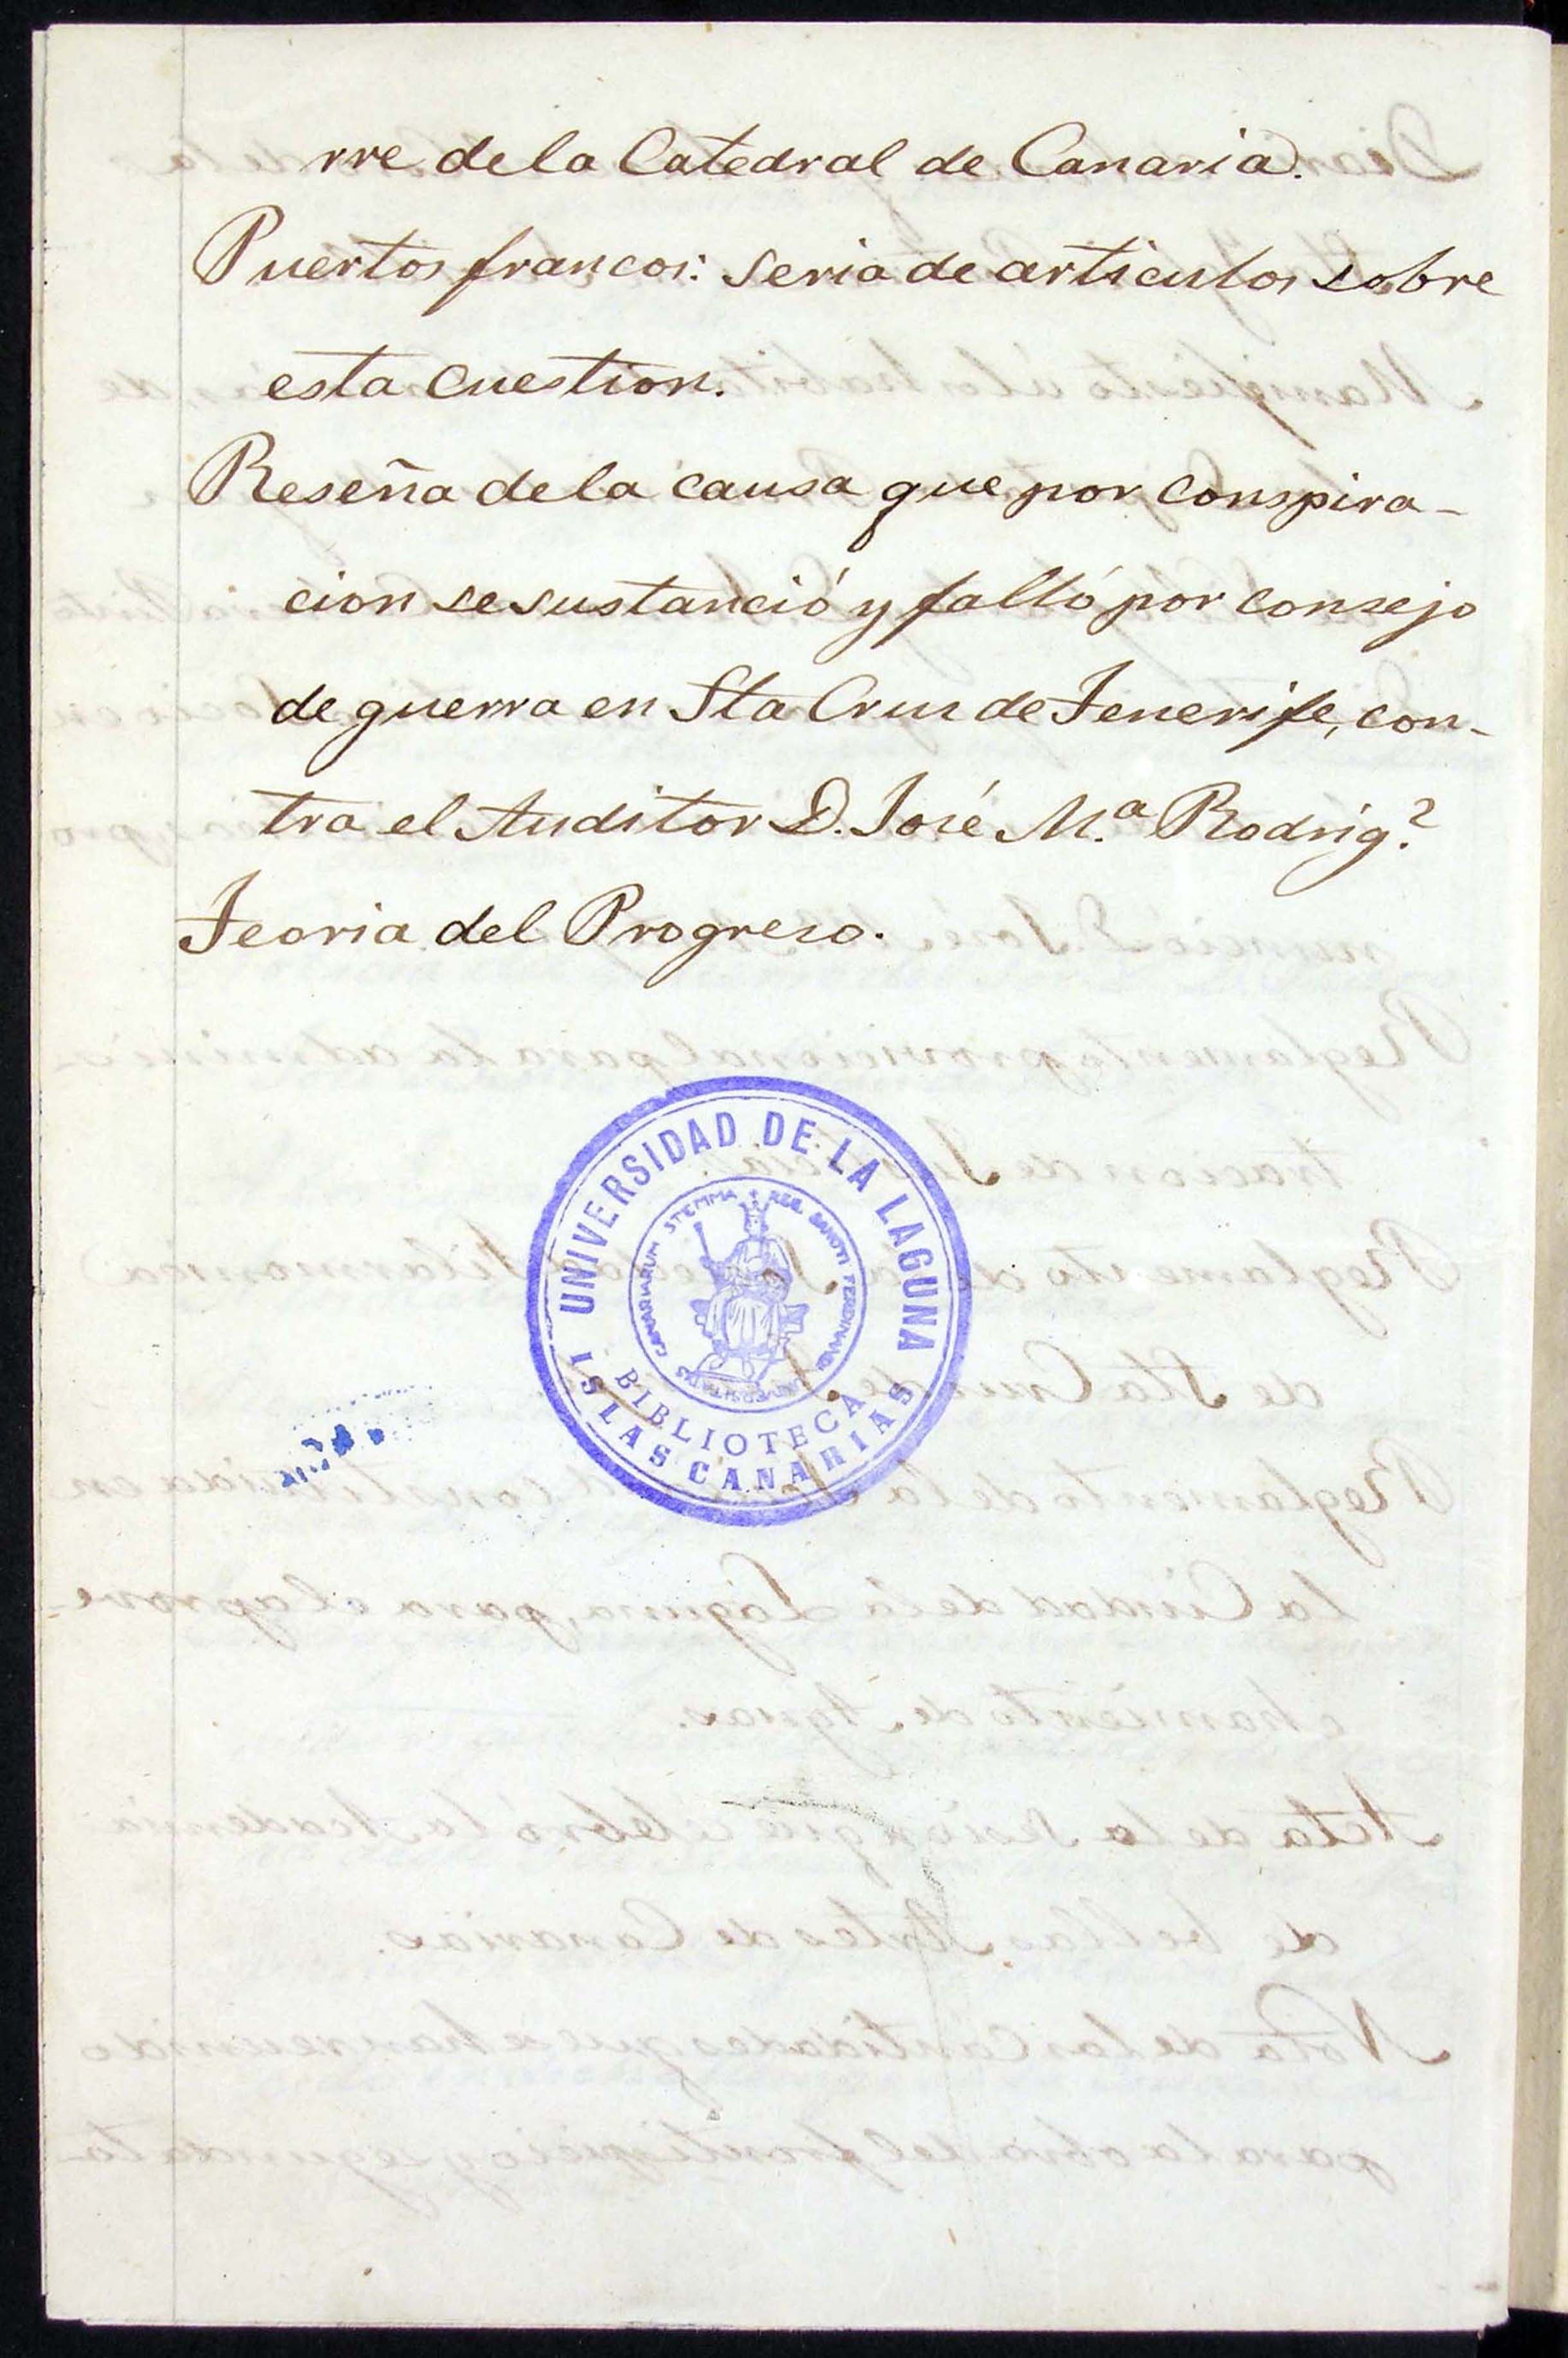 rre de la Catedral de Canaria.
Puertos francos: seria de articulos sobre
esta cuestion.
Reseña de la causa que por conspira-
cion se sustanció y falló por consejo
de guerra en Sta Cruz de Tenerife, con-
tra el Auditor D. José M.ª Rodrig.z
Teoria del Progreso.
UNIVERSIDAD DE LA LAGUNA
CANARIARUM STEMMA REG. SANCTI FERDINANDI
BIBLIOTECA
ISLAS CANARIAS